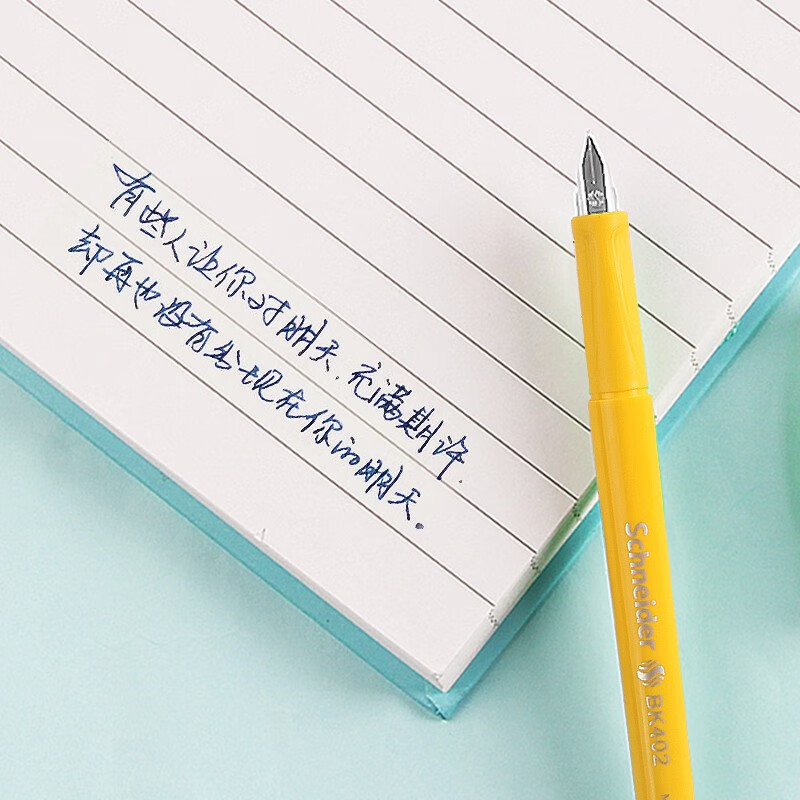 有些人让你对明天.充满期许.
却再也没有出现在你的明天。
Schneider BK402